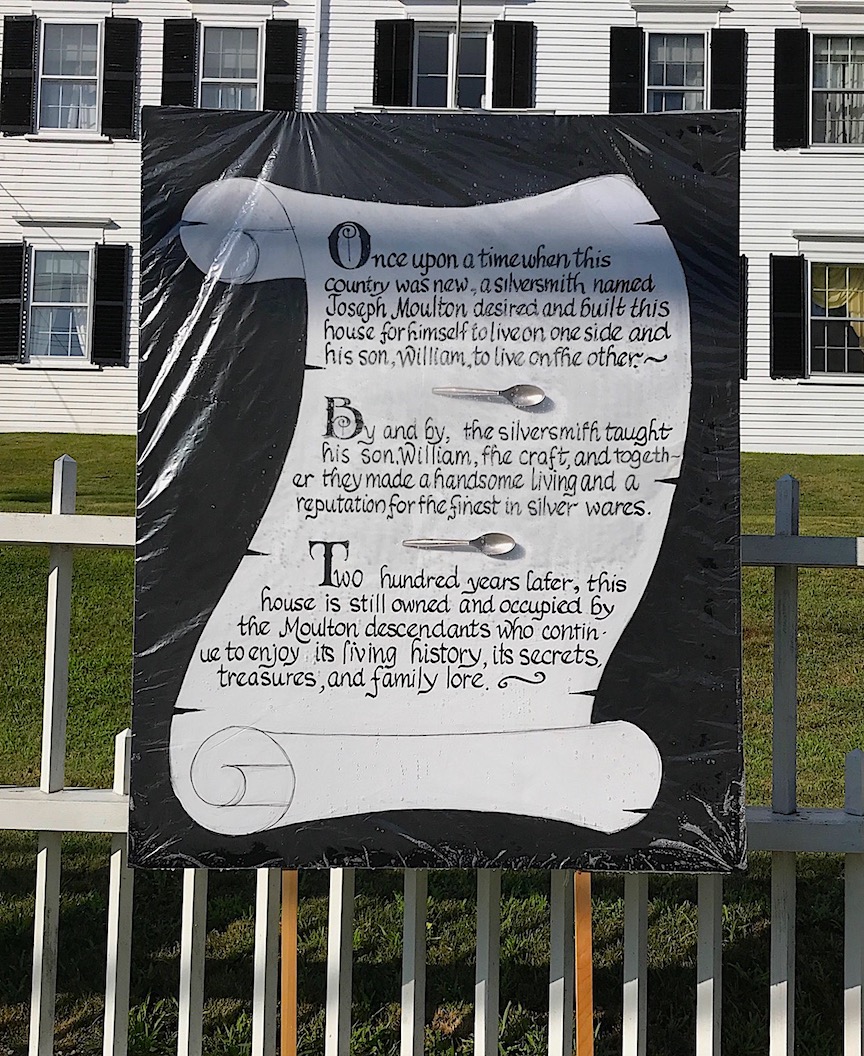 Once upon a time when this
country was new, a silversmith named
Joseph Moulton desired and built this
house for himself to live on one side and
his son, William, to live on the other.~
By and by, the silversmith taught
his son, William, the craft, and togeth~
er they made a handsome living and a
reputation for the finest in silver wares.
Two hundred years later, this
house is still owned and occupied by
the Moulton descendants who contin-
ue to enjoy its living history, its secrets,
treasures, and family lore.